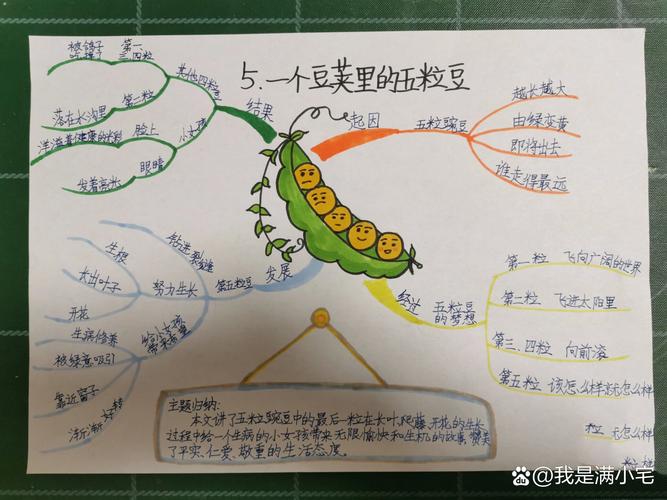 5.一个豆荚里的五粒豆
起因
五粒豌豆
越长越大
由绿变黄
即将出去
谁走得最远
经过
五粒豆
的梦想
第一粒 飞向广阔的世界
第二粒 飞进太阳里
第三.四粒 向前滚
第五粒 该怎么样就怎么样
粒
怎么样
发展
第五粒豆
钻进裂缝
努力生长
生根
长出叶子
开花
给小女孩
生病修养
被绿意吸引
靠近窗子
渐渐
好转
结果
其他四粒豆
第一
三.四粒
被鸽子
吃掉了
第二粒
落在水沟里
小女孩
脸上
洋溢着健康的光彩
眼睛
发着亮光
主题归纳:
本文讲了五粒豌豆中的最后一粒在长叶,爬藤,开花的生长
过程中给一个生病的小女孩带来无限愉快和生机的故事,赞美
了平实,仁爱,敬重的生活态度。
@我是满小宅